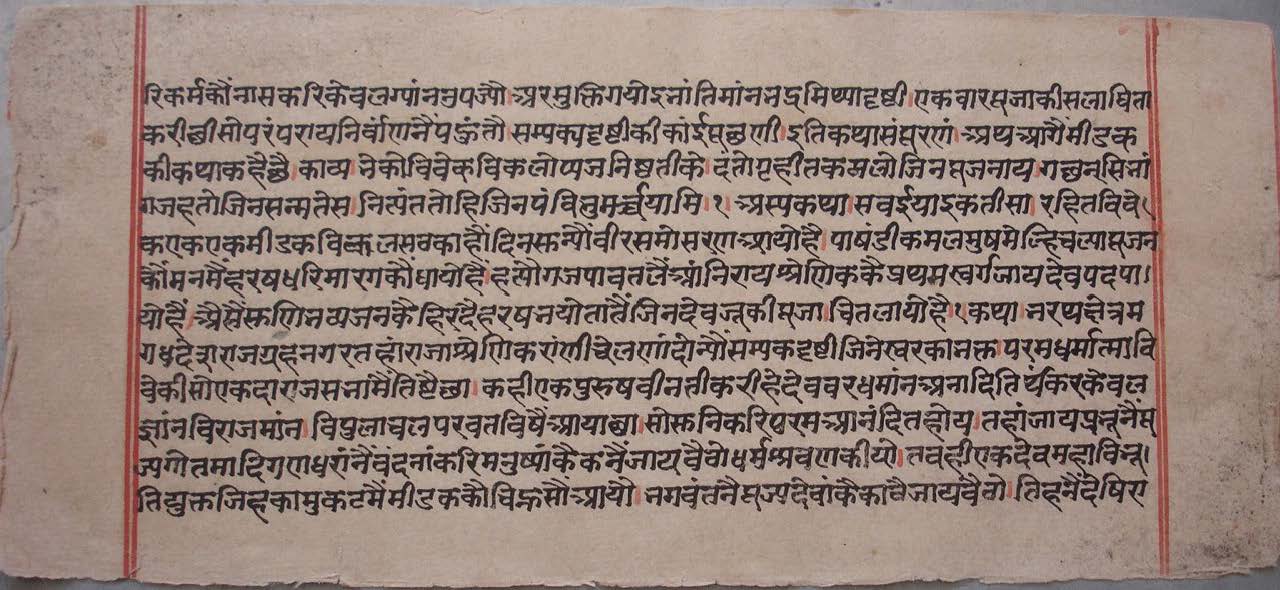 रिकर्मकौंनासकरिकेवलग्यांनउपज्यौ।अरमुक्तिगयो।इनांतिमांनभद्रमिथ्यादृष्टी।एकवारपूजाकीसलाघिता
करीछीसोपरंपरायनिर्वांणनैंपहुंतौ सम्यक्यदृष्टीकीकांईपूछणी।इतिकथासंपूरणं।अथआगैंमीडक
कीकथाकहैछै।काव्य भेकोविवेकविकलोप्यजनिष्टनीके दंतोगृहीतकमलोजिनपूजनाय गछनसिनां
गजहतोजिनसन्मतेस नित्यंततोहिजिनपंविभुमर्च्चयामि।१ अस्यकथा।सवईयाइकतीसा।रहितविवे।
कएकएकमीडकविकलसवकाहौं दिनसुन्यौंवीरसमोसरणआयोहै पाषंडीकमलमुषमेंल्हिचल्यापूजन
कौंमनमैंहरषधरिमारगकौंधायोहै हत्यौगजपावतलैंआंनिरायश्रेणिककै प्रथमस्वर्गजायदेवपदपा।
योहै अैसैंसुणिभव्यजनकैहिरदैहरषभयोतातैंजिनदेवजूकीपूजा।चितलायोहै१ कथा भरथक्षेत्रम
गधदेशराजग्रहनगरतहांराजाश्रेणिकरांणीचेलणांदोन्यौंसम्यकदृष्टीजिनेस्वरकाभक्त।परमधर्मात्मावि
वेकीसोएकदाराजसभामैंतिष्टैछा।कहीएकपुरुषवीनतीकरीहेदेववरधमांनअनादितिर्थंकरकेवल
ज्ञांनविराजमांन।विपुलाचलपरवतविषैंआयाछा।सोसुनिकरिपरमआनंदितहोय।तहांजायप्रभूनैंपू
ज्यगोतमादिगणधरांनैवंदनांकरिमनुष्यांकैकनैंजायवैवोधर्मश्रवणकीयो।तवहीएकदेवमहाविभू।
तियुक्तजिहकामुकटमैंमीडककौचिह्नसौआयौ भगवंतनैपूज्यदेवांकैकोठैजायवैठौ।तिहनैंदेषिरा